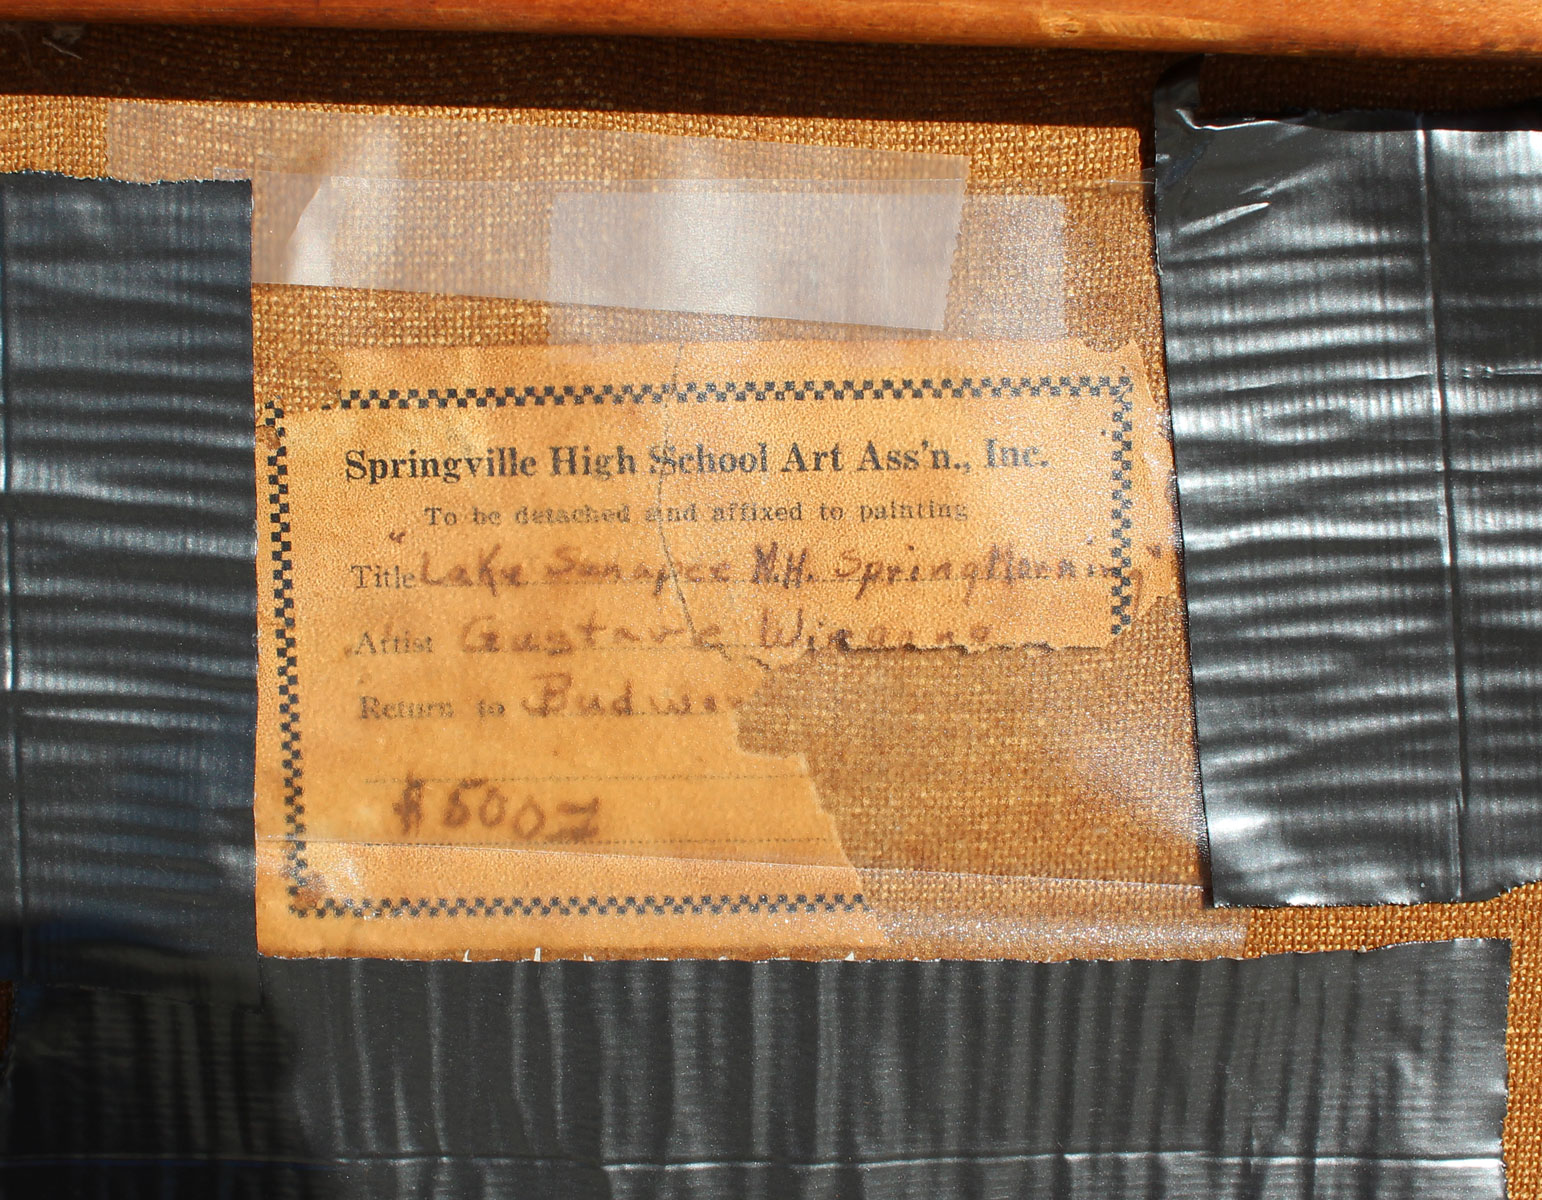 Springville High School Art Ass'n., Inc.
To be detached and affixed to painting
Title "Lake Sunapee N.H. Spring Morning"
Artist Gustave Wiegand
Return to Budwor
$500